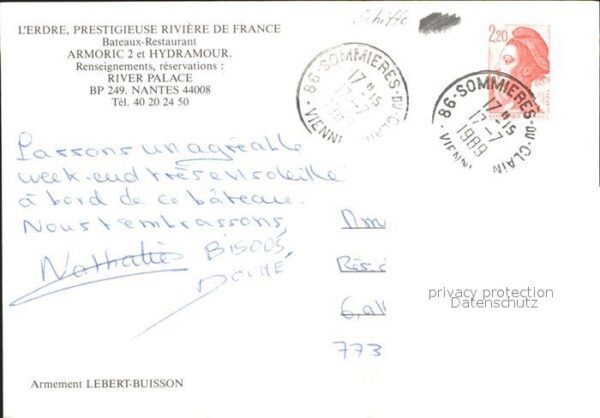 Schiffe
L'ERDRE, PRESTIGIEUSE RIVIÈRE DE FRANCE
Bateaux-Restaurant
ARMORIC 2 et HYDRAMOUR.
Renseignements, réservations :
RIVER PALACE
BP 249. NANTES 44008
Tél. 40 20 24 50
2,20
86-SOMMIERES-DU-CLAIN
17H15
17-7
1989
VIENNE
86-SOMMIERES-DU-CLAIN
17H15
17-7
1989
VIENNE
Passons un agréable
week-end très ensoleillé
à bord de ce bâteau.
Nous t'embrassons,
Nathalie BISOUS
773
privacy protection
Datenschutz
Armement LEBERT-BUISSON